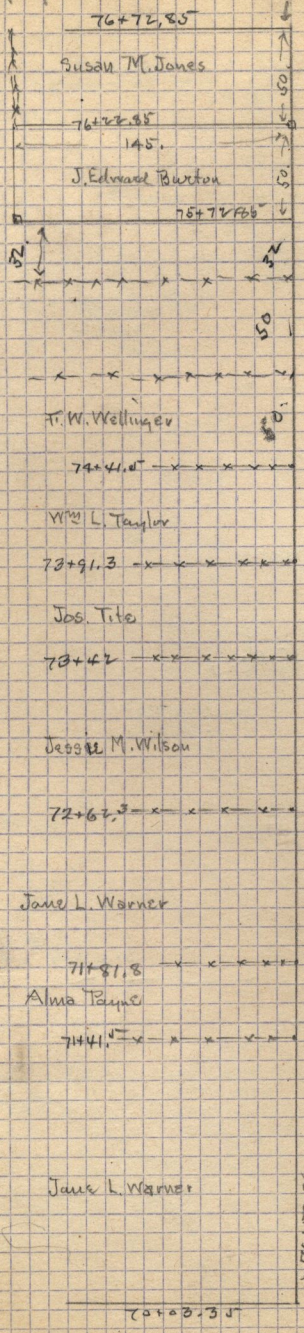 76+72.85
50.
Susan M. Jones
76+22.85
145.
J. Edward Burton
50.
75+72.85
32.
32
50
50.
T. W. Wellinger
74+41.5
Wm L. Taylor
73+91.3
Jos. Tite
73+42
Jessie M. Wilson
72+62.3
Jane L. Warner
71+81.8
Alma Payne
71+41.5
Jane L. Warner
70+03.35